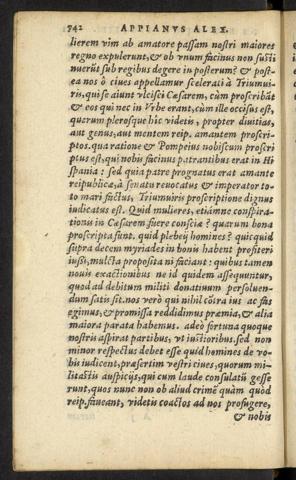 742 APPIANVS ALEX.
lierem vim ab amatore passam nostri maiores
regno expulerunt, & ob vnum facinus non susti
nuerūt sub regibus degere in posterum? & post
ea nos ò ciues appellamur scelerati à Triumui-
ris, qui se aiunt vlcisci Cæsarem, cùm proscribāt
& eos qui nec in Vrbe erant, cùm ille occisus est,
quorum plerosque hîc videtis, propter diuitias,
aut genus, aut mentem reip. amantem proscri-
ptos. qua ratione & Pompeius nobiscum proscri
ptus est, qui nobis facinus patrantibus erat in Hi
spania: sed quia patre prognatus erat amante
reipublicæ, à senatu reuocatus & imperator to-
to mari factus, Triumuiris proscriptione dignus
iudicatus est. Quid mulieres, etiámne conspira-
tionis in Cæsarem fuere consciæ? quarum bona
proscripta sunt. quid plebeij homines? quicquid
supra decem myriades in bonis habent profiteri
iussi, mulcta proposita ni faciant: quibus tamen
nouis exactionibus ne id quidem assequuntur,
quod ad debitum militi donatiuum persoluen-
dum satis sit. nos verò qui nihil cōtra ius ac fas
egimus, & promissa reddidimus præmia, & alia
maiora parata habemus. adeò fortuna quoque
nostris aspirat partibus, vt iustioribus. sed non
minor respectus debet esse quid homines de vo-
bis iudicent, præsertim vestri ciues, quorum mi-
litastis auspicijs, qui cum laude consulatū gesse
runt, quos nunc non ob aliud crimē quàm quod
reip. faueant, videtis coactos ad nos profugere,
& nobis